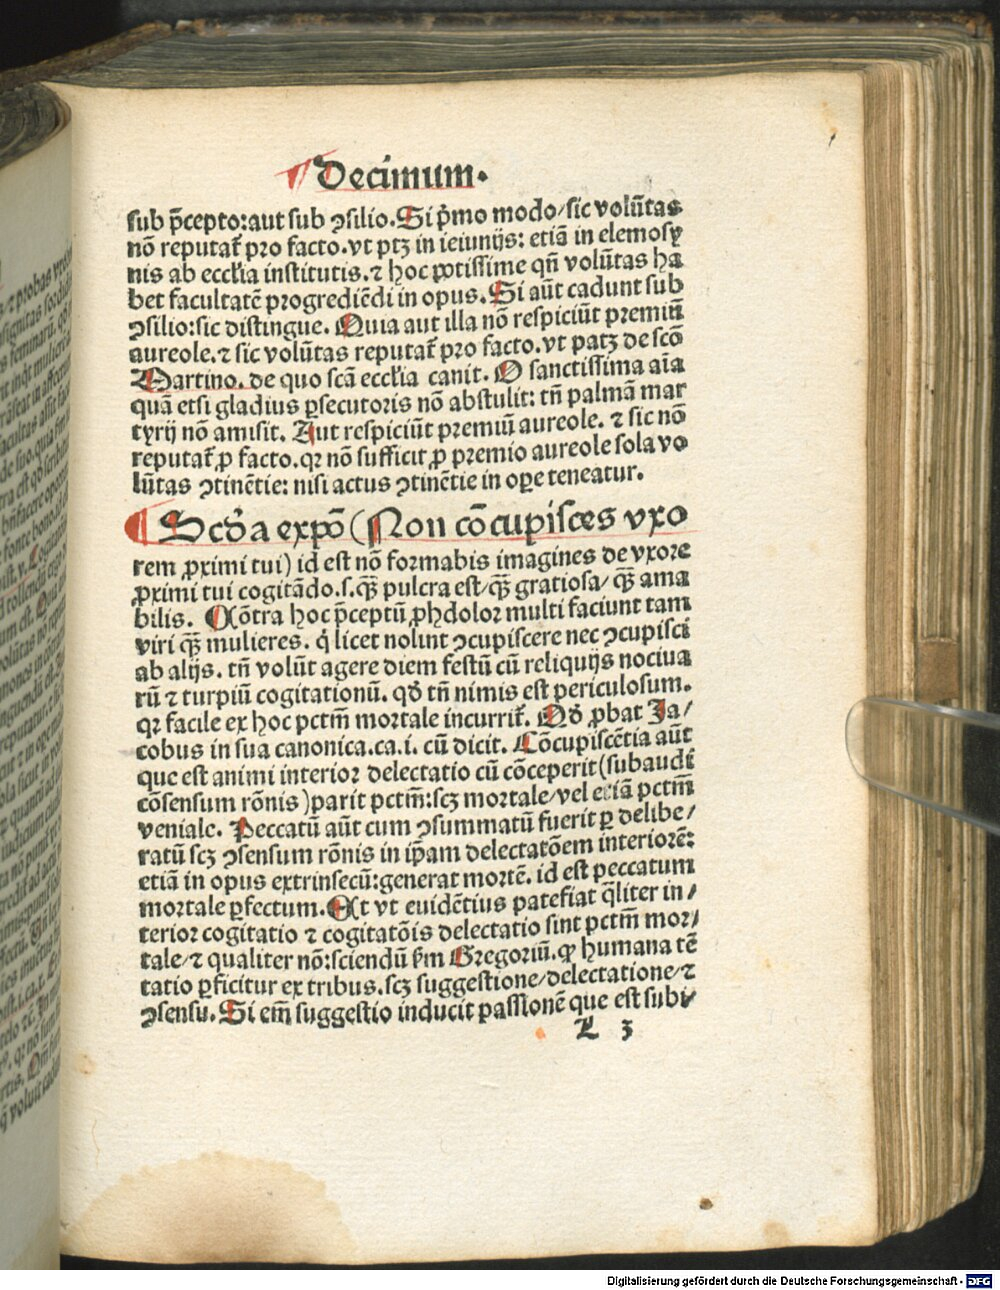 Decimum.
sub p̄cepto:aut sub ꝯsilio. Si p̓mo modo/sic volūtas
nō reputat̄ pro facto.vt ptꝫ in ieiunijs: etiā in elemosy
nis ab eccl̓ia institutis. ⁊ hoc potissime qn̄ volūtas ha
bet facultatē progrediēdi in opus. Si aūt cadunt sub
ꝯsilio:sic distingue. Quia aut illa nō respiciūt premiū
aureole. ⁊ sic volūtas reputat̄ pro facto.vt patꝫ de scō
Martino. de quo scā eccl̓ia canit. O sanctissima aīa
quā etsi gladius ꝑsecutoris nō abstulit: tn̄ palmā mar
tyrij nō amisit. Aut respiciūt premiū aureole. ⁊ sic nō
reputat̄ ꝓ facto. qꝛ nō sufficit ꝓ premio aureole sola vo
lūtas ꝯtinētie: nisi actus ꝯtinētie in oꝑe teneatur.
Scd̓a expō (Non cōcupisces vxo
rem ꝓximi tui) id est nō formabis imagines de vxore
ꝓximi tui cogitādo.s.qꝫ̄ pulcra est/qꝫ̄ gratiosa/qꝫ̄ ama
bilis. Cōtra hoc p̄ceptū ꝓhdolor multi faciunt tam
viri qꝫ̄ mulieres. q̓ licet nolunt ꝯcupiscere nec ꝯcupisci
ab alijs. tn̄ volūt agere diem festū cū reliquijs nociua
rū ⁊ turpiū cogitationū. qd̓ tn̄ nimis est periculosum.
qꝛ facile ex hoc pctm̄ mortale incurrit̄. Qd̓ ꝓbat Ja/
cobus in sua canonica.ca.i. cū dicit. Cōcupiscētia aūt
que est animi interior delectatio cū cōceperit (subaudi
cōsensum rōnis) parit pctm̄:scꝫ mortale/vel etiā pctm̄
veniale. Peccatū aūt cum ꝯsummatū fuerit ꝑ delibe/
ratū scꝫ ꝯsensum rōnis in ip̄am delectatōem interiorē:
etiā in opus extrinsecū:generat mortē. id est peccatum
mortale ꝑfectum. Et vt euidētius patefiat q̄liter in/
terior cogitatio ⁊ cogitatōis delectatio sint pctm̄ mor/
tale/⁊ qualiter nō:sciendū ẜm Gregoriū. ꝙ humana tē
tatio ꝑficitur ex tribus.scꝫ suggestione/delectatione/⁊
ꝯsensu. Si em̄ suggestio inducit passionē que est subi/
L 3
Digitalisierung gefördert durch die Deutsche Forschungsgemeinschaft - DFG